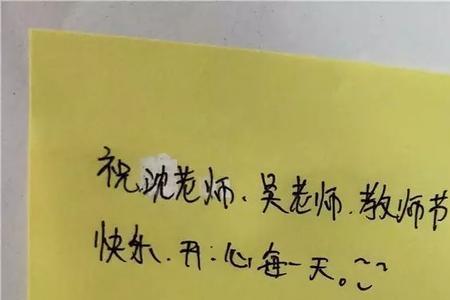 祝沈老师、吴老师、教师节
快乐、开心每一天。~~